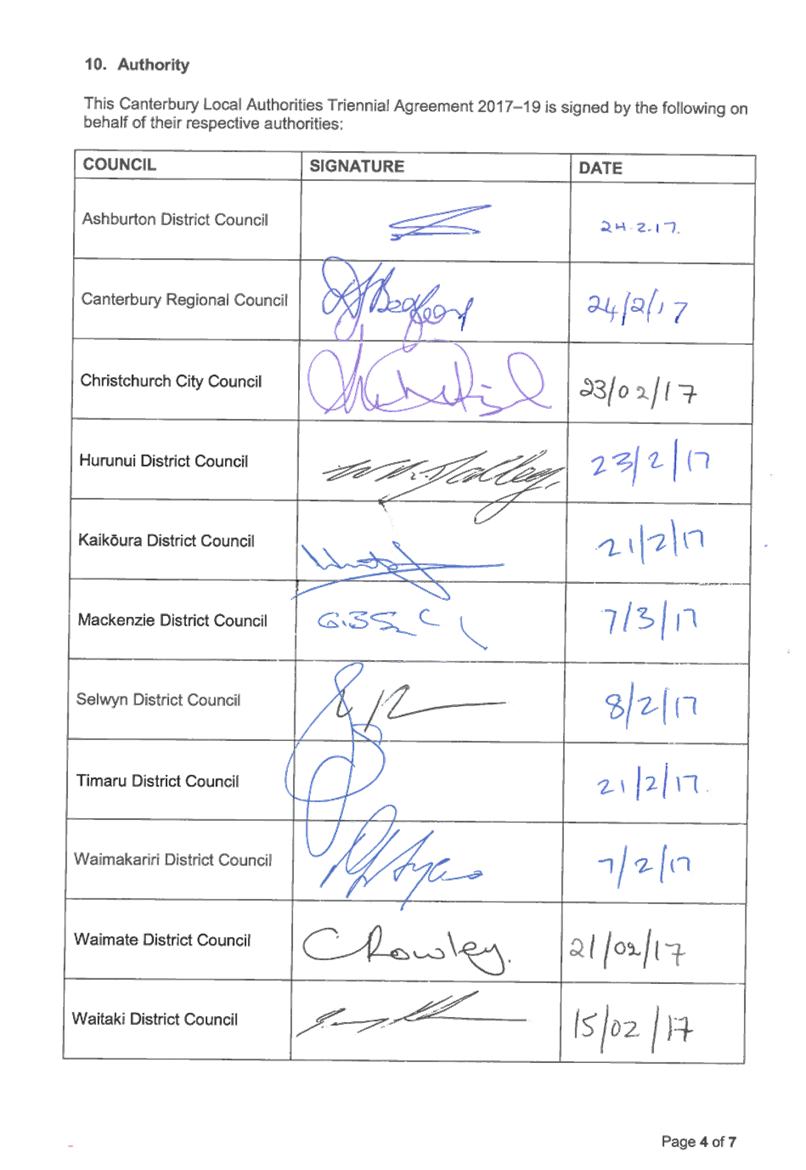 10. Authority
This Canterbury Local Authorities Triennial Agreement 2017–19 is signed by the following on
behalf of their respective authorities:
COUNCIL SIGNATURE DATE
Ashburton District Council 24.2.17.
Canterbury Regional Council 24/2/17
Christchurch City Council 23/02/17
Hurunui District Council 23/2/17
Kaikōura District Council 21/2/17
Mackenzie District Council 7/3/17
Selwyn District Council 8/2/17
Timaru District Council 21/2/17.
Waimakariri District Council 7/2/17
Waimate District Council CRowley. 21/02/17
Waitaki District Council 15/02/17
Page 4 of 7